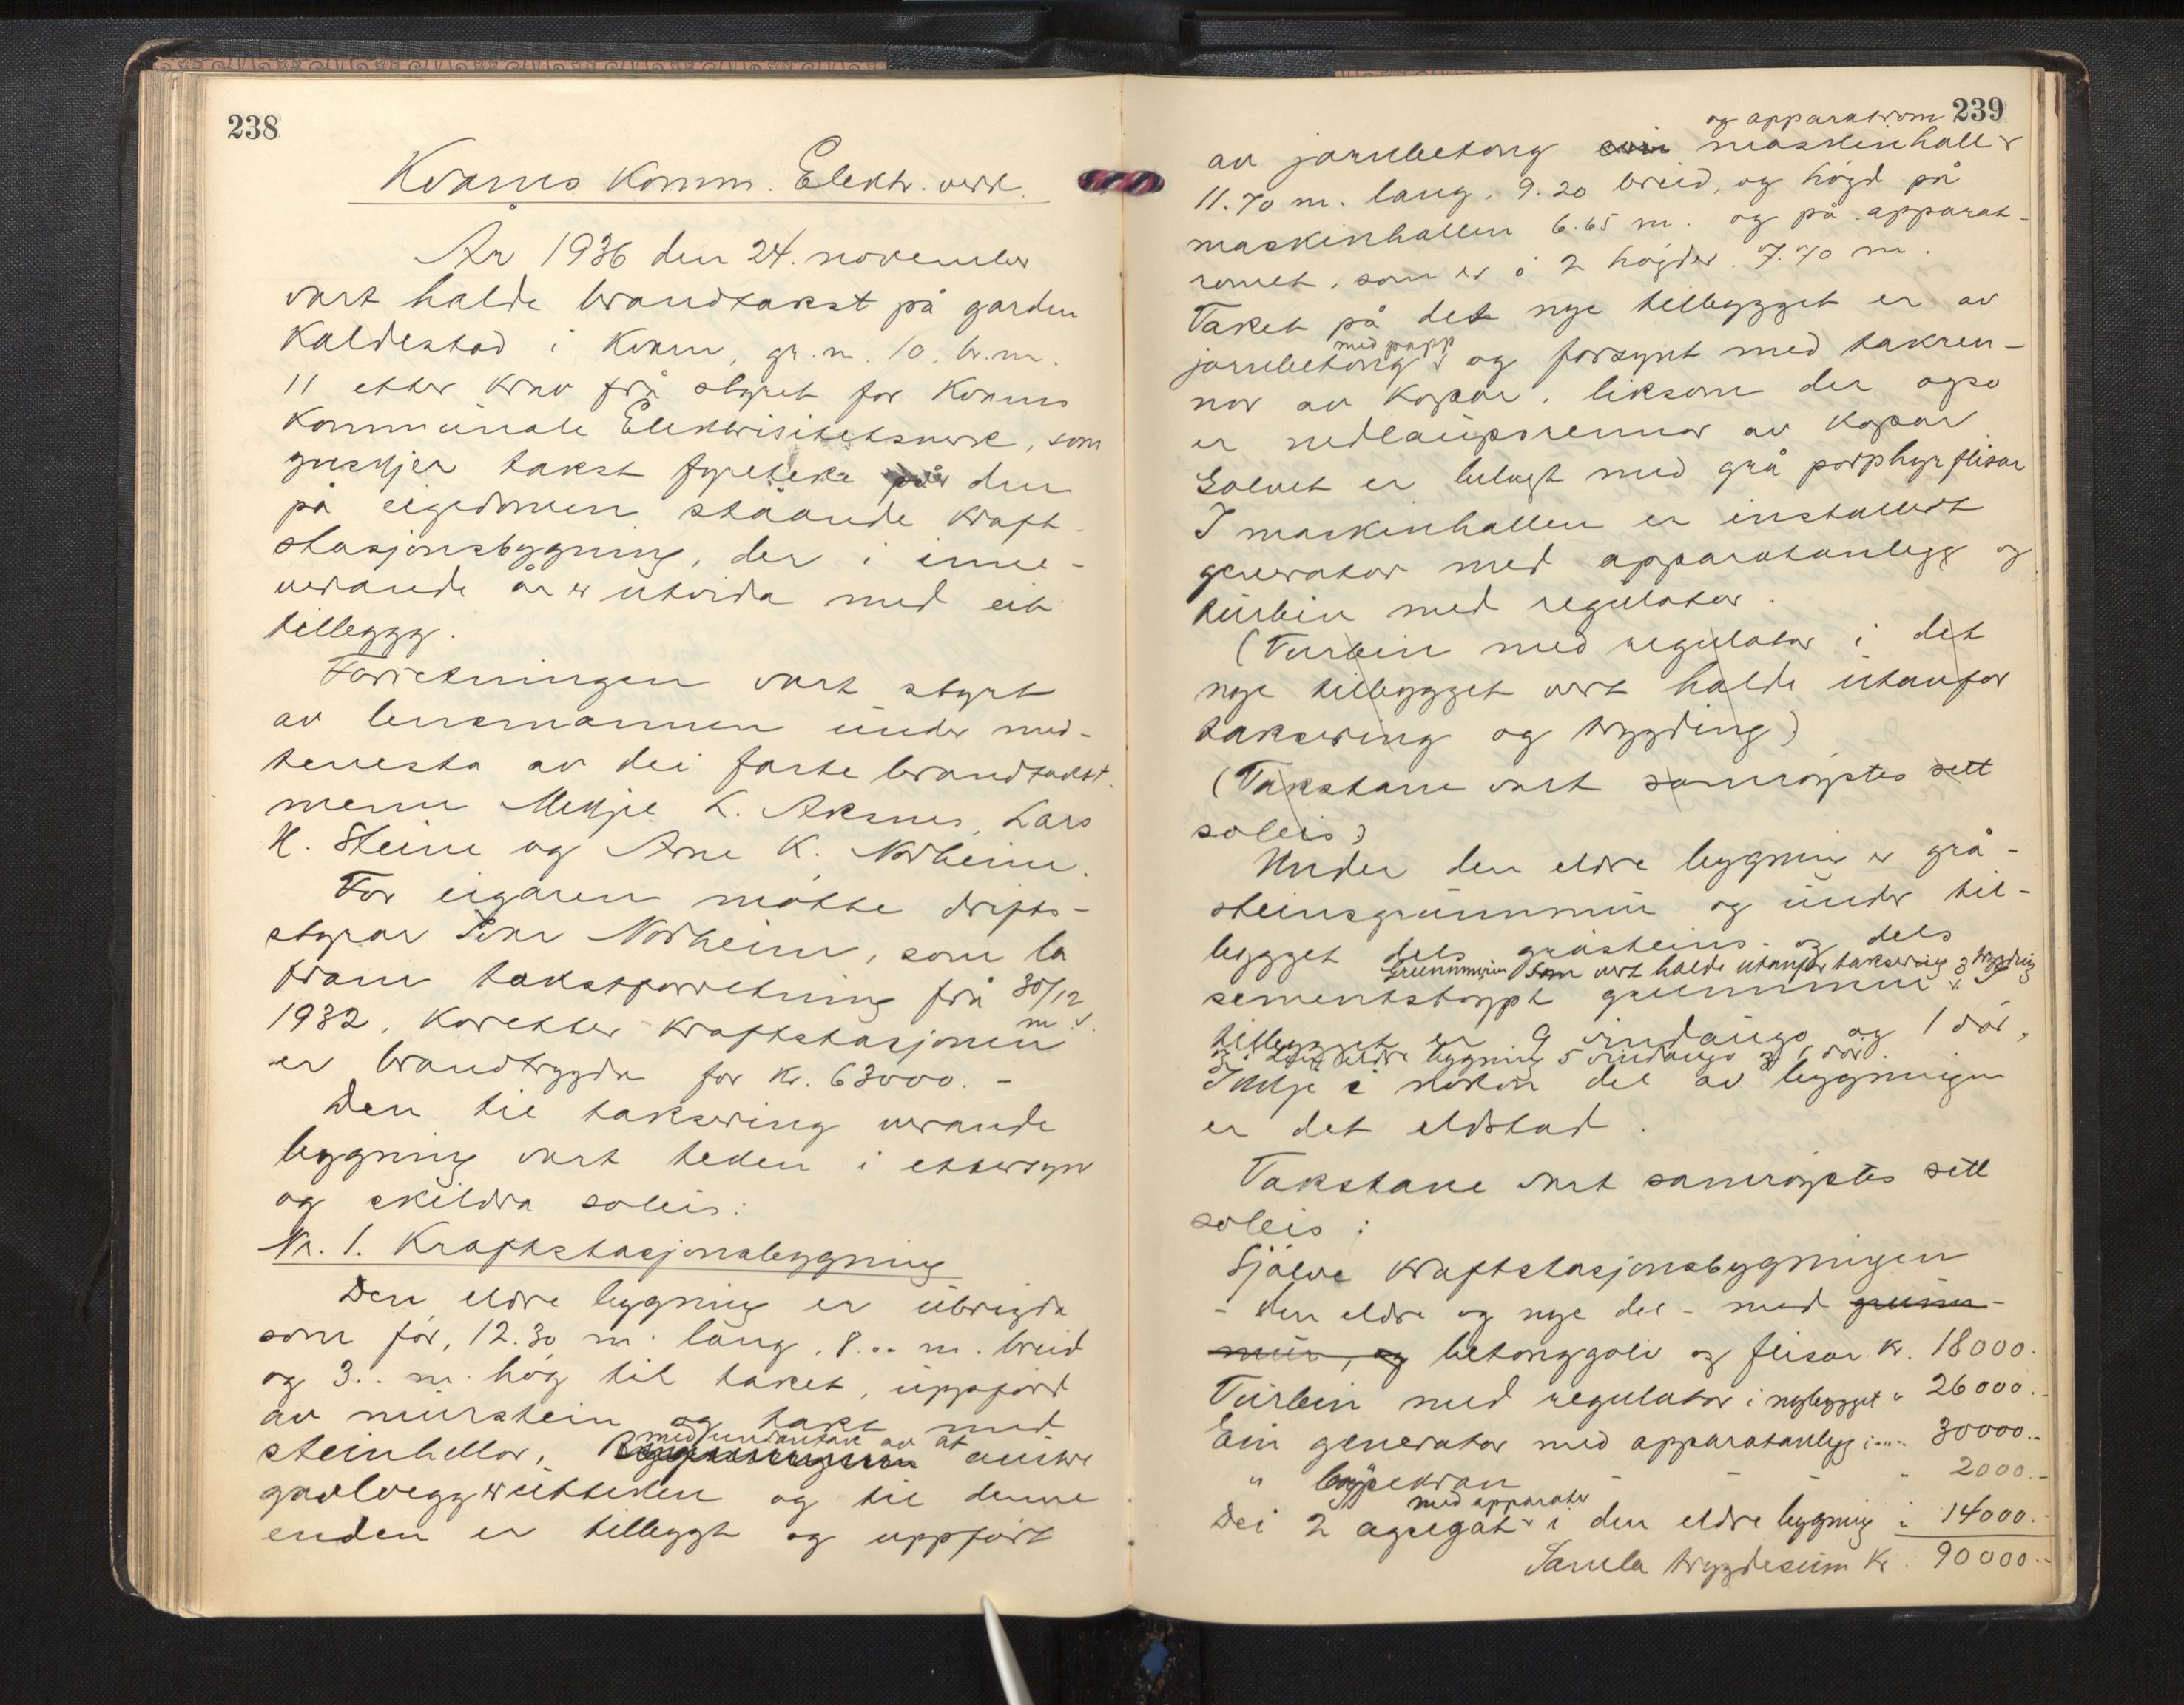 238
Kvams Komm. Elektr. verk.
År 1936 den 24. november
vart halde brandtakst på garden
Kaldestad i Kvam, gr. nr. 10, br. nr.
11 etter krav frå styret for Kvams
Kommunale Elektrisitetsverk, som
ynskjer takst fyreteke på den
på eigedomen ståande kraft-
stasjonsbygning, der i inne-
verande år er utvida med eit
tillegg.
Forretningen vart styrt
av lensmannen under med-
tenesta av dei faste brandtakst-
menn Mikjel L. Aksnes, Lars
H. Steine og Arne K. Norheim.
For eigaren møtte drifts-
styrar Norheim, som la
fram takstforretning frå 30/12
1932, koretter kraftstasjonen m.v.
er brandtrygda for kr. 63000.-
Den til taksering verande
bygning vart teken i ettersyn
og skildra soleis:
Nr. 1. Kraftstasjonsbygning
Den eldre bygning er ubrigda
som før, 12.30 m. lang, 8.00 m. breid
og 3.. m. høg til taket, uppførd
av murstein og takt med
steinhellor, med undantak av at austre
gavlvegg er utteken og til denne
enden er tilleggt og uppført
239
og apparatrom
av jarnbetong ein maskinhall
11.70 m. lang, 9.20 breid, og høgd på
maskinhallen 6.65 m. og på apparat-
romet, som er i 2 høgder 7.70 m.
Taket på det nye tillegget er av
med papp
jarnbetong og forsynt med takren-
nor av kopar, liksom der også
er nedlaupsrennor av kopar
Golvet er belagt med grå porphyrflisar
I maskinhallen er installert
generator med apparatanlegg og
turbin med regulator.
(Turbin med regulator i det
nye tillegget vert halde utanfor
taksering og trygding)
(Takstane vart samrøystes sett
soleis)
Under den eldre bygning er grå-
steinsgrunnmur og under til-
legget dels gråsteins- og dels
Grunnmuren som vert halde utanfor taksering og trygding
sementstøypt grunnmur. I
tillegget er 9 vindaugo og 1 dør,
og i den eldre bygning 5 vindaugo og 1 dør.
Ikkje i nokon del av bygningen
er det eldstad.
Takstane vart samrøystes sett
soleis:
Sjølve kraftstasjonsbygningen
- den eldre og nye del - med grunn-
mur, og betonggolv og flisar kr. 18000.-
Turbin med regulator i nybygget " 26000.-
Ein generator med apparatanlegg i " 30000.-
" løpekran - - - " 2000.-
med apparater
Dei 2 agregat i den eldre bygning " 14000.-
Samla trygdesum kr. 90000.-